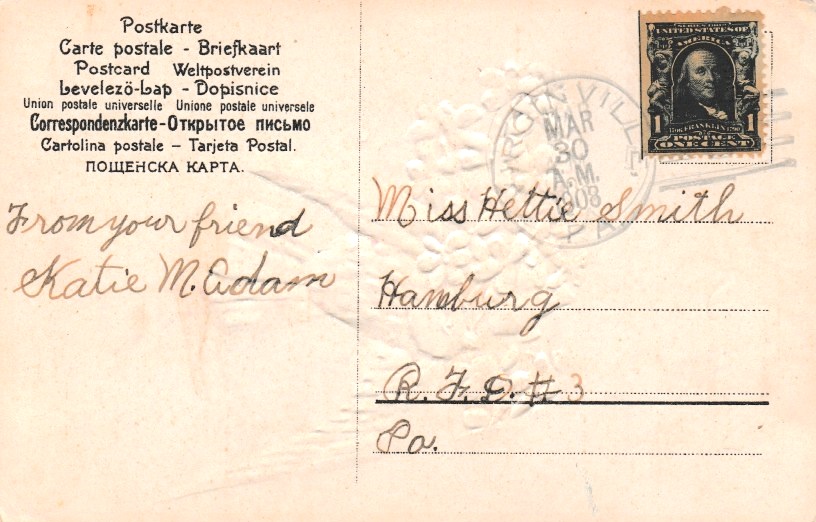 Postkarte
Carte postale - Briefkaart
Postcard Weltpostverein
Levelező-Lap - Dopisnice
Union postale universelle Unione postale universele
Correspondenzkarte - Открытое письмо
Cartolina postale - Tarjeta Postal.
ПОЩЕНСКА КАРТА.
From your friend
Katie M. Adam
SERIES 1902
UNITED STATES OF
AMERICA
1 1
1706 FRANKLIN 1790
POSTAGE
ONE CENT
VIRGINVILLE
MAR
30
A.M.
1908
PA.
Miss Hettie Smith
Hamburg
R. F. D. # 3
Pa.